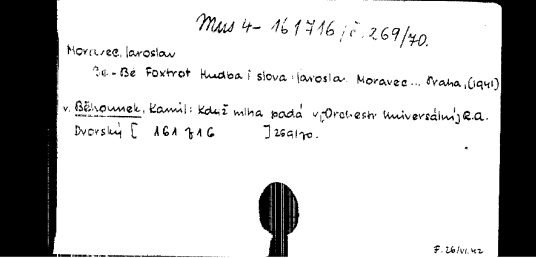 Mus 4- 161716/č. 269/70.
Moravec, Jaroslav
Be-Be Foxtrot Hudba i slova: Jarosla. Moravec... Praha, (1941)
v. Běhounek, Kamil: Když mlha padá v, Orchestr Universální, R.A.
Dvorský [ 161 716 ] 269/70.
F. 26/VI.42